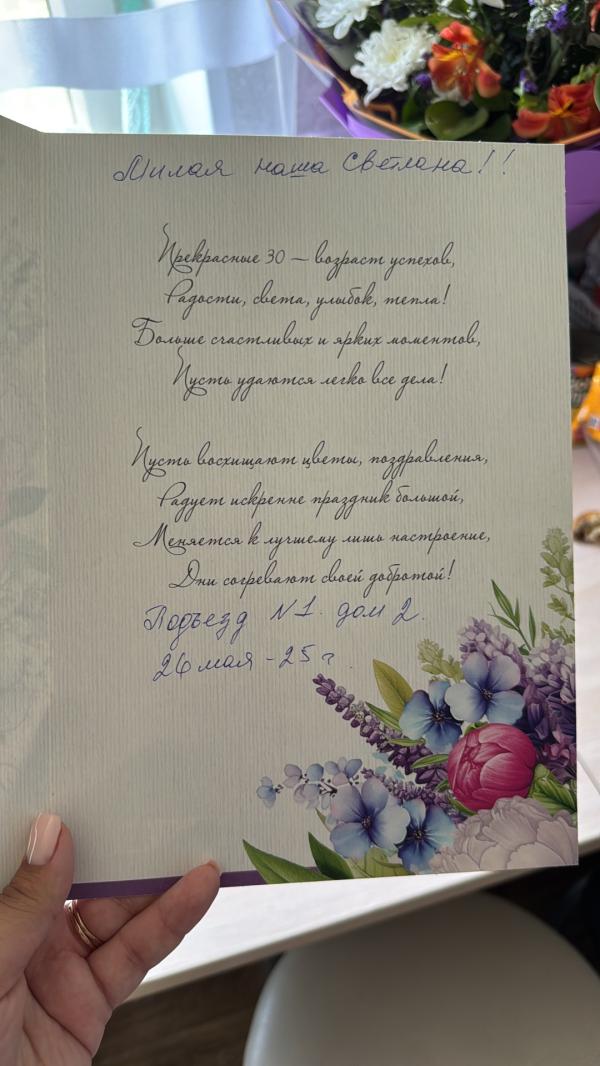 Милая наша Светлана!!
Прекрасные 30 — возраст успехов,
Радости, света, улыбок, тепла!
Больше счастливых и ярких моментов,
Пусть удаются легко все дела!
Пусть восхищают цветы, поздравления,
Радует искренне праздник большой,
Меняется к лучшему лишь настроение,
Дни согревают своей добротой!
Подъезд N1. дом 2.
26 мая - 25 г.